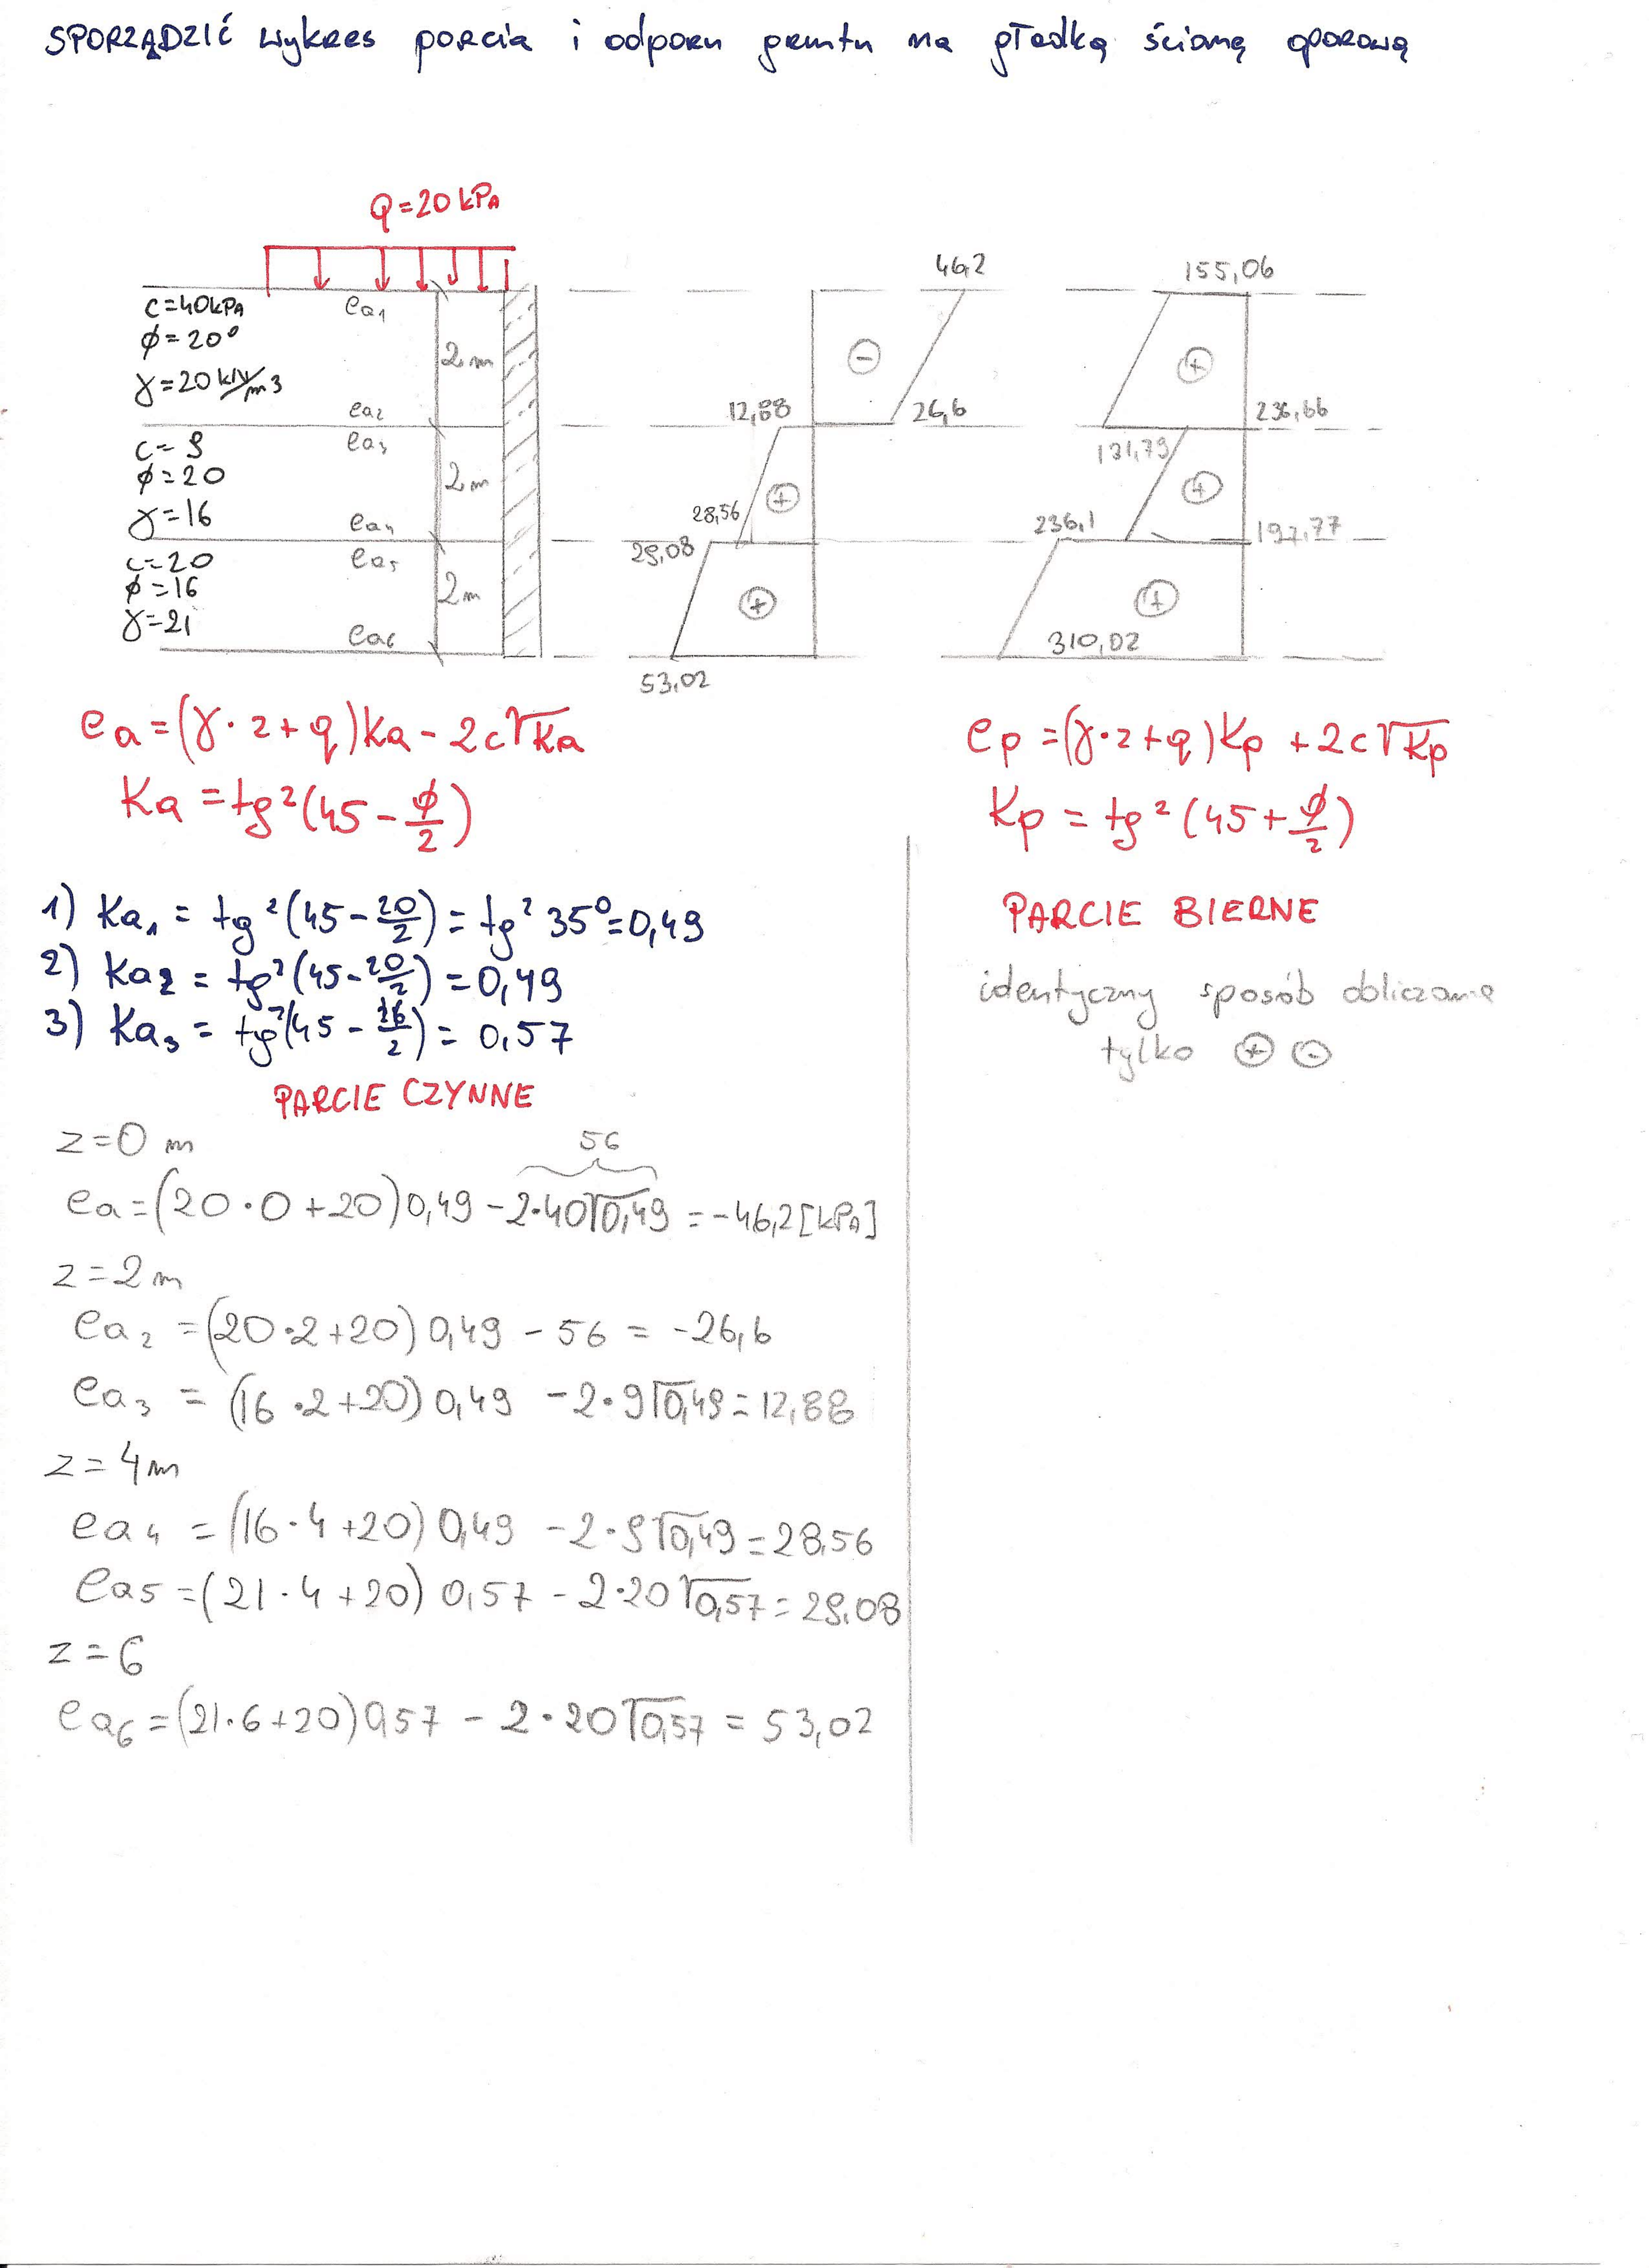 SPORZĄDZIĆ wykres parcia i odporu gruntu na gładką ścianę oporową
Q=20 kPa
c=40kPa
ϕ=20°
γ=20 kN/m3
ea1
ea2
2m
c=9
ϕ=20
γ=16
ea3
ea4
2m
c=20
ϕ=16
γ=21
ea5
ea6
2m
46,2
-
12,88
26,6
28,56
+
29,08
+
53,02
155,06
+
236,66
131,79
+
236,1
197,77
+
310,02
ea=(γ·z+q)Ka-2c√Ka
Ka=tg²(45-ϕ/2)
ep=(γ·z+q)Kp+2c√Kp
Kp=tg²(45+ϕ/2)
1) Ka1 = tg²(45-20/2)=tg² 35°=0,49
2) Ka2 = tg²(45-20/2)=0,49
3) Ka3 = tg²(45-16/2)= 0,57
PARCIE CZYNNE
z=0 m
56
ea=(20·0+20)0,49-2·40√0,49=-46,2[kPa]
z=2m
ea2=(20·2+20)0,49-56=-26,6
ea3 = (16·2+20)0,49-2·9√0,49=12,88
z=4m
ea4=(16·4+20)0,49-2·9√0,49=28,56
ea5=(21·4+20)0,57-2·20√0,57=29,08
z=6
ea6=(21·6+20)0,57-2·20√0,57=53,02
PARCIE BIERNE
identyczny sposób obliczania
tylko + -